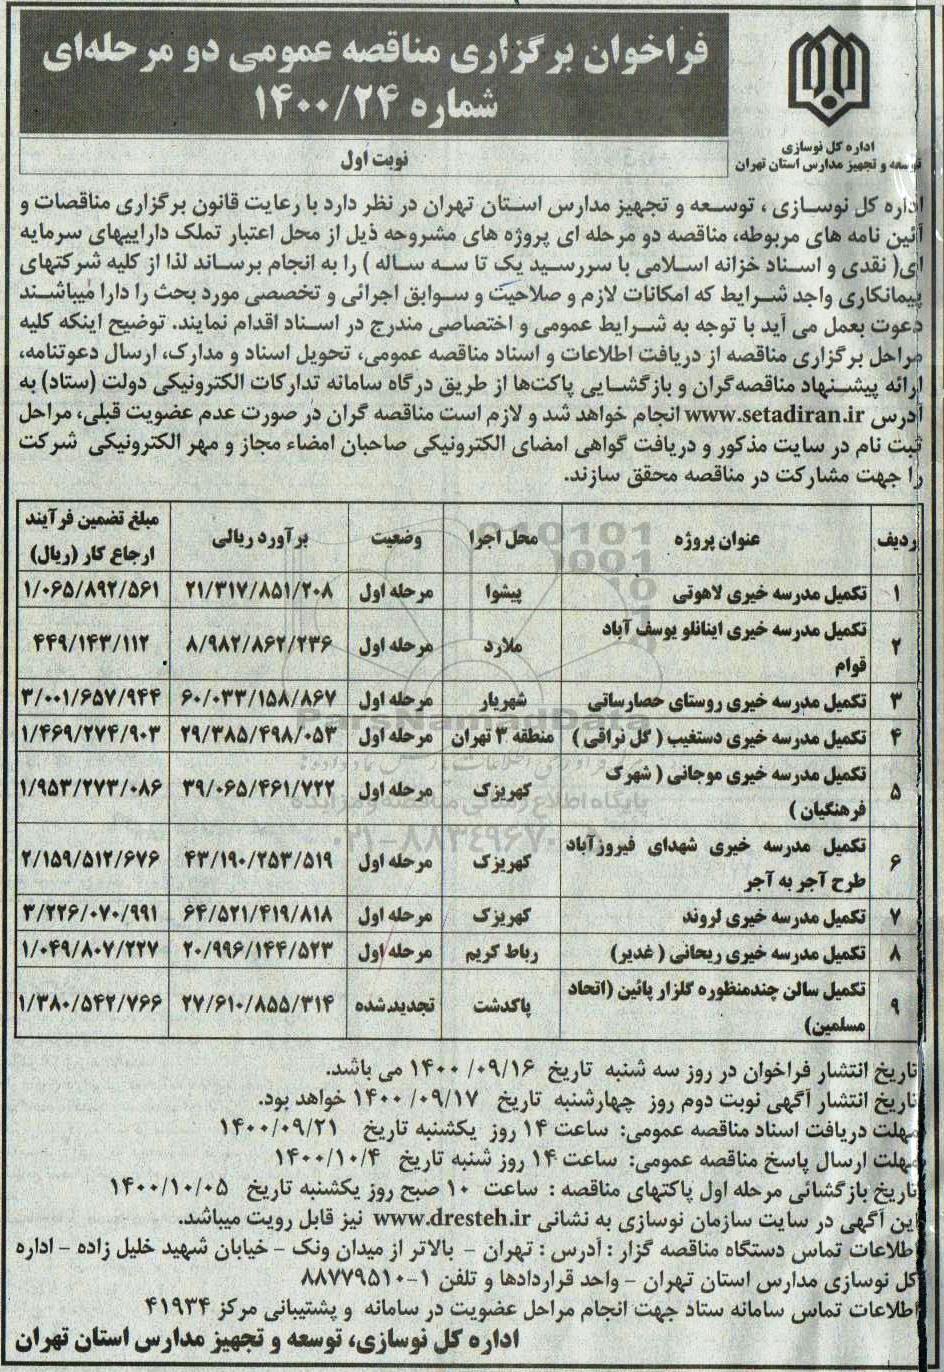 فراخوان برگزاری مناقصه عمومی دو مرحله‌ای
شماره ۱۴۰۰/۲۴
اداره کل نوسازی
توسعه و تجهیز مدارس استان تهران
نوبت اول
اداره کل نوسازی ، توسعه و تجهیز مدارس استان تهران در نظر دارد با رعایت قانون برگزاری مناقصات و
آئین نامه های مربوطه، مناقصه دو مرحله ای پروژه های مشروحه ذیل از محل اعتبار تملک داراییهای سرمایه
ای( نقدی و اسناد خزانه اسلامی با سررسید یک تا سه ساله ) را به انجام برساند لذا از کلیه شرکتهای
پیمانکاری واجد شرایط که امکانات لازم و صلاحیت و سوابق اجرائی و تخصصی مورد بحث را دارا میباشند
دعوت بعمل می آید با توجه به شرایط عمومی و اختصاصی مندرج در اسناد اقدام نمایند. توضیح اینکه کلیه
مراحل برگزاری مناقصه از دریافت اطلاعات و اسناد مناقصه عمومی، تحویل اسناد و مدارک، ارسال دعوتنامه،
ارائه پیشنهاد مناقصه‌گران و بازگشایی پاکت‌ها از طریق درگاه سامانه تدارکات الکترونیکی دولت (ستاد) به
آدرس www.setadiran.ir انجام خواهد شد و لازم است مناقصه گران در صورت عدم عضویت قبلی، مراحل
ثبت نام در سایت مذکور و دریافت گواهی امضای الکترونیکی صاحبان امضاء مجاز و مهر الکترونیکی شرکت
را جهت مشارکت در مناقصه محقق سازند.
ردیف عنوان پروژه محل اجرا وضعیت برآورد ریالی مبلغ تضمین فرآیند ارجاع کار (ریال)
۱ تکمیل مدرسه خیری لاهوتی پیشوا مرحله اول ۲۱/۳۱۷/۸۵۱/۲۰۸ ۱/۰۶۵/۸۹۲/۵۶۱
۲ تکمیل مدرسه خیری اینانلو یوسف آباد قوام ملارد مرحله اول ۸/۹۸۲/۸۶۲/۲۳۶ ۴۴۹/۱۴۳/۱۱۲
۳ تکمیل مدرسه خیری روستای حصارساتی شهریار مرحله اول ۶۰/۰۳۳/۱۵۸/۸۶۷ ۳/۰۰۱/۶۵۷/۹۴۴
۴ تکمیل مدرسه خیری دستغیب ( گل نراقی ) منطقه ۳ تهران مرحله اول ۲۹/۳۸۵/۴۹۸/۰۵۳ ۱/۴۶۹/۲۷۴/۹۰۳
۵ تکمیل مدرسه خیری موجانی ( شهرک فرهنگیان ) کهریزک مرحله اول ۳۹/۰۶۵/۴۶۱/۷۲۲ ۱/۹۵۳/۲۷۳/۰۸۶
۶ تکمیل مدرسه خیری شهدای فیروزآباد طرح آجر به آجر کهریزک مرحله اول ۴۳/۱۹۰/۲۵۳/۵۱۹ ۲/۱۵۹/۵۱۲/۶۷۶
۷ تکمیل مدرسه خیری لروند کهریزک مرحله اول ۶۴/۵۲۱/۴۱۹/۸۱۸ ۳/۲۲۶/۰۷۰/۹۹۱
۸ تکمیل مدرسه خیری ریحانی ( غدیر) رباط کریم مرحله اول ۲۰/۹۹۶/۱۴۴/۵۲۳ ۱/۰۴۹/۸۰۷/۲۲۷
۹ تکمیل سالن چندمنظوره گلزار پائین (اتحاد مسلمین) پاکدشت تجدیدشده ۲۷/۶۱۰/۸۵۵/۳۱۴ ۱/۳۸۰/۵۴۲/۷۶۶
ParsNamadData
پایگاه اطلاع رسانی مناقصه و مزایده
۰۲۱-۸۸۳۴۹۶۷۰
تاریخ انتشار فراخوان در روز سه شنبه تاریخ ۱۴۰۰/۰۹/۱۶ می باشد.
تاریخ انتشار آگهی نوبت دوم روز چهارشنبه تاریخ ۱۴۰۰/۰۹/۱۷ خواهد بود.
مهلت دریافت اسناد مناقصه عمومی: ساعت ۱۴ روز یکشنبه تاریخ ۱۴۰۰/۰۹/۲۱
مهلت ارسال پاسخ مناقصه عمومی: ساعت ۱۴ روز شنبه تاریخ ۱۴۰۰/۱۰/۴
تاریخ بازگشائی مرحله اول پاکتهای مناقصه : ساعت ۱۰ صبح روز یکشنبه تاریخ ۱۴۰۰/۱۰/۰۵
این آگهی در سایت سازمان نوسازی به نشانی www.dresteh.ir نیز قابل رویت میباشد.
اطلاعات تماس دستگاه مناقصه گزار : آدرس : تهران - بالاتر از میدان ونک - خیابان شهید خلیل زاده - اداره
کل نوسازی مدارس استان تهران - واحد قراردادها و تلفن ۱-۸۸۷۷۹۵۱۰
اطلاعات تماس سامانه ستاد جهت انجام مراحل عضویت در سامانه و پشتیبانی مرکز ۴۱۹۳۴
اداره کل نوسازی، توسعه و تجهیز مدارس استان تهران